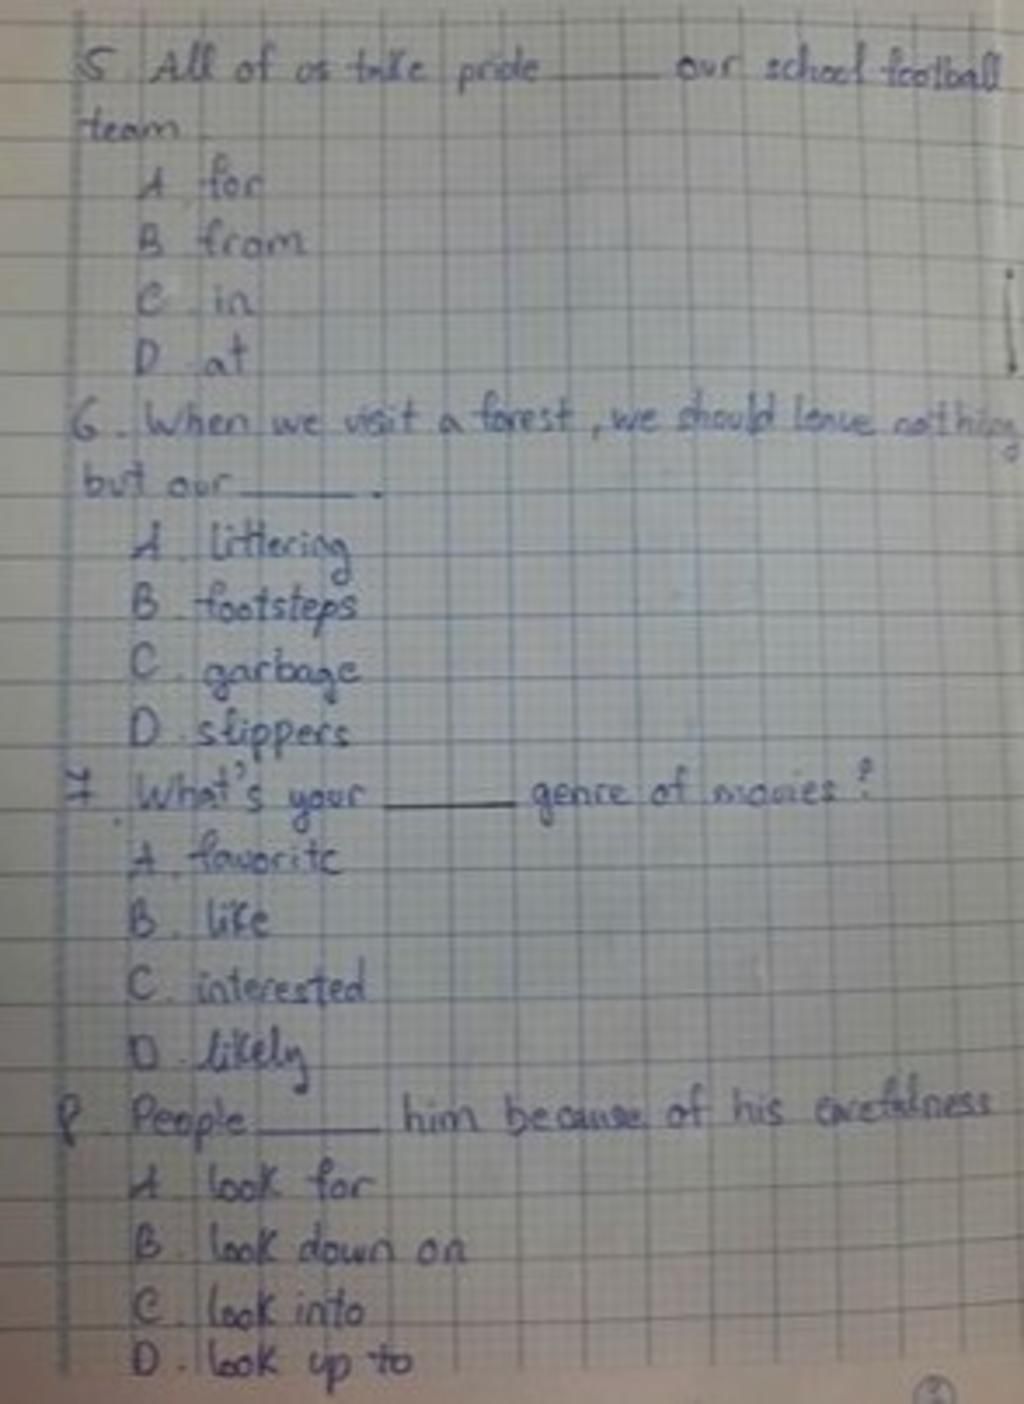 5. All of us take pride ____ our school football
team.
A. for
B. from
C. in
D. at
6. When we visit a forest, we should leave nothing
but our ____.
A. littering
B. footsteps
C. garbage
D. slippers
7. What's your ____ genre of movies?
A. favorite
B. like
C. interested
D. likely
8. People ____ him because of his carefulness
A. look for
B. look down on
C. look into
D. look up to
2